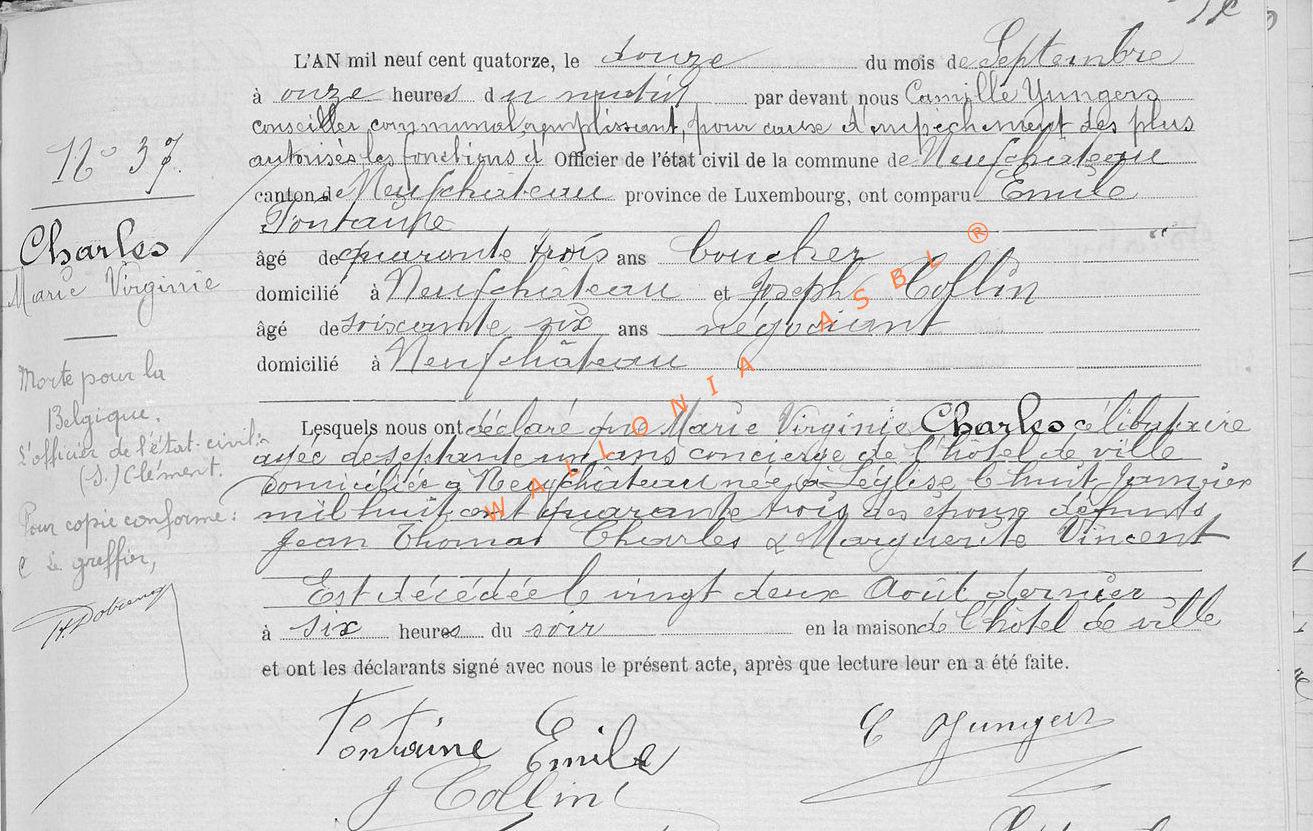 L'AN mil neuf cent quatorze, le douze du mois de Septembre
à onze heures du matin par devant nous Camille Yungers
conseiller communal remplissant, pour cause d'empêchement des plus
autorisés les fonctions d' Officier de l'état civil de la commune de Neufchâteau
canton de Neufchâteau province de Luxembourg, ont comparu Emile
Fontaine
âgé de quarante trois ans boucher
domicilié à Neufchâteau et Joseph Collin
âgé de soixante six ans négociant
domicilié à Neufchâteau
Lesquels nous ont déclaré que Marie Virginie Charles célibataire
agée de septante un ans concierge de l'hôtel de ville
domiciliée à Neufchâteau née à Léglise le huit Janvier
mil huit cent quarante trois des époux défunts
Jean Thomas Charles & Marguerite Vincent
Est décédée le vingt deux Août dernier
à six heures du soir en la maison de l'hôtel de ville
et ont les déclarants signé avec nous le présent acte, après que lecture leur en a été faite.
Fontaine Emile
C Yungers
J Collin
N° 37.
Charles
Marie Virginie
Morte pour la
Belgique.
L'officier de l'état-civil:
(S.) Clément.
Pour copie conforme:
Le greffier,
WALLONIA ASBL ®